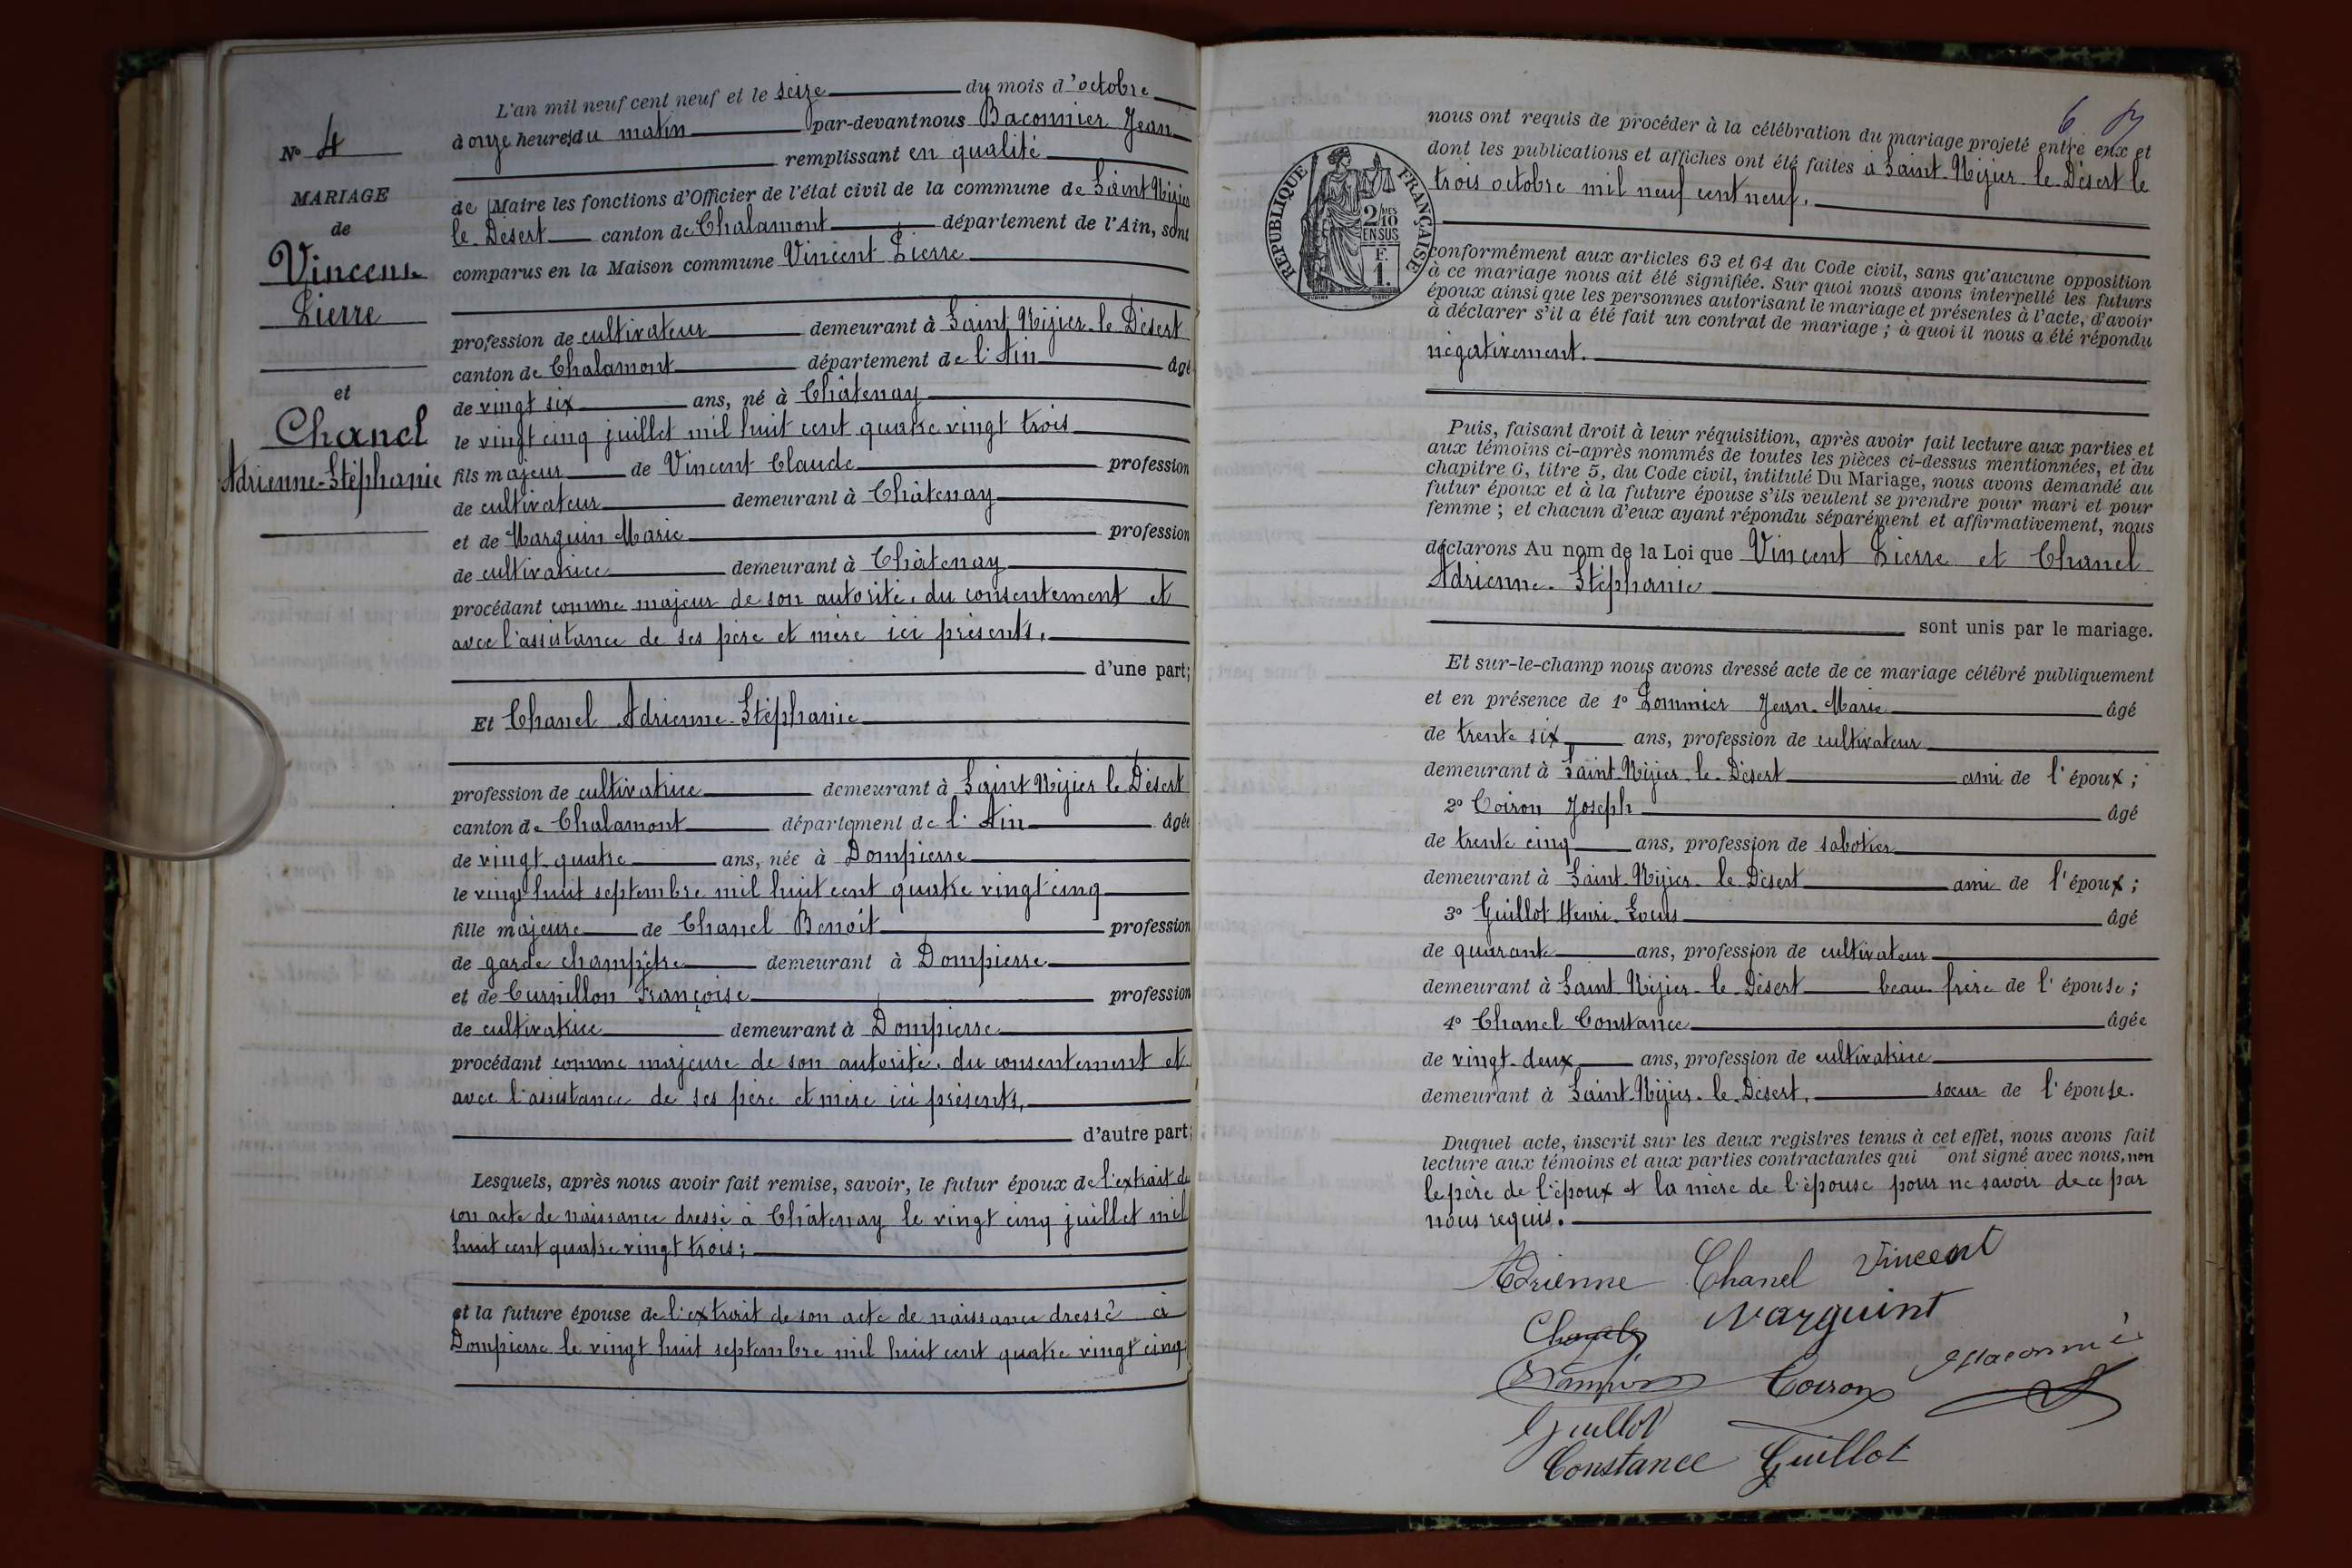 N° 4
MARIAGE
de
Vincent
Pierre
et
Chanel
Adrienne-Stéphanie
L'an mil neuf cent neuf et le seize du mois d'octobre
à onze heures du matin par-devant nous Baconnier Jean
remplissant en qualité
de Maire les fonctions d'Officier de l'état civil de la commune de Saint Nizier
le Désert canton de Chalamont département de l'Ain, sont
comparus en la Maison commune Vincent Pierre
profession de cultivateur demeurant à Saint Nizier-le Désert
canton de Chalamont département de l'Ain âgé
de vingt six ans, né à Châtenay
le vingt cinq juillet mil huit cent quatre vingt trois
fils majeur de Vincent Claude profession
de cultivateur demeurant à Châtenay
et de Marguin Marie profession
de cultivatrice demeurant à Châtenay
procédant comme majeur de son autorité, du consentement et
avec l'assistance de ses père et mère ici présents,
d'une part;
Et Chanel Adrienne-Stéphanie
profession de cultivatrice demeurant à Saint Nizier le Désert
canton de Chalamont département de l'Ain âgée
de vingt quatre ans, née à Dompierre
le vingt huit septembre mil huit cent quatre vingt cinq
fille majeure de Chanel Benoît profession
de garde champêtre demeurant à Dompierre
et de Curnillon Françoise profession
de cultivatrice demeurant à Dompierre
procédant comme majeure de son autorité, du consentement et
avec l'assistance de ses père et mère ici présents,
d'autre part;
Lesquels, après nous avoir fait remise, savoir, le futur époux de l'extrait de
son acte de naissance dressé à Châtenay le vingt cinq juillet mil
huit cent quatre vingt trois;
et la future épouse de l'extrait de son acte de naissance dressé à
Dompierre le vingt huit septembre mil huit cent quatre vingt cinq
6
nous ont requis de procéder à la célébration du mariage projeté entre eux et
dont les publications et affiches ont été faites à Saint-Nizier-le-Désert le
trois octobre mil neuf cent neuf.
RÉPUBLIQUE FRANÇAISE
2/10MES
EN SUS
F.
1.
conformément aux articles 63 et 64 du Code civil, sans qu'aucune opposition
à ce mariage nous ait été signifiée. Sur quoi nous avons interpellé les futurs
époux ainsi que les personnes autorisant le mariage et présentes à l'acte, d'avoir
à déclarer s'il a été fait un contrat de mariage ; à quoi il nous a été répondu
négativement.
Puis, faisant droit à leur réquisition, après avoir fait lecture aux parties et
aux témoins ci-après nommés de toutes les pièces ci-dessus mentionnées, et du
chapitre 6, titre 5, du Code civil, intitulé Du Mariage, nous avons demandé au
futur époux et à la future épouse s'ils veulent se prendre pour mari et pour
femme ; et chacun d'eux ayant répondu séparément et affirmativement, nous
déclarons Au nom de la Loi que Vincent Pierre et Chanel
Adrienne-Stéphanie
sont unis par le mariage.
Et sur-le-champ nous avons dressé acte de ce mariage célébré publiquement
et en présence de 1° Pommier Jean-Marie âgé
de trente six ans, profession de cultivateur
demeurant à Saint-Nizier-le-Désert ami de l'époux ;
2° Coiron Joseph âgé
de trente cinq ans, profession de sabotier
demeurant à Saint-Nizier-le-Désert ami de l'époux ;
3° Guillot Henri-Louis âgé
de quarante ans, profession de cultivateur
demeurant à Saint Nizier-le-Désert beau frère de l'épouse ;
4° Chanel Constance âgée
de vingt-deux ans, profession de cultivatrice
demeurant à Saint-Nizier-le-Désert, sœur de l'épouse.
Duquel acte, inscrit sur les deux registres tenus à cet effet, nous avons fait
lecture aux témoins et aux parties contractantes qui ont signé avec nous, non
le père de l'époux et la mère de l'épouse pour ne savoir de ce par
nous requis.
Adrienne Chanel Vincent
Chanel Marguint
Coiron
Guillot
Constance Guillot